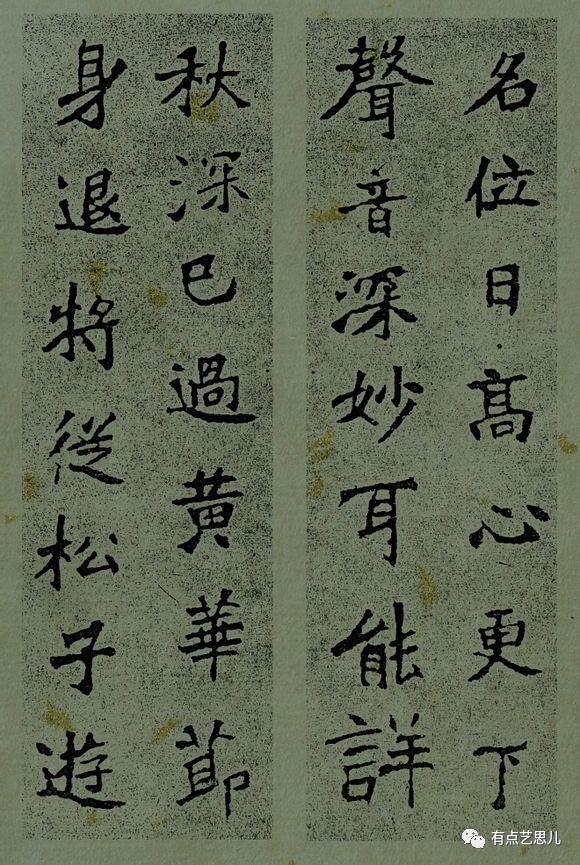 名位日高心更下
聲音深妙耳能詳
秋深已過黃華節
身退將從松子遊
有点艺思儿